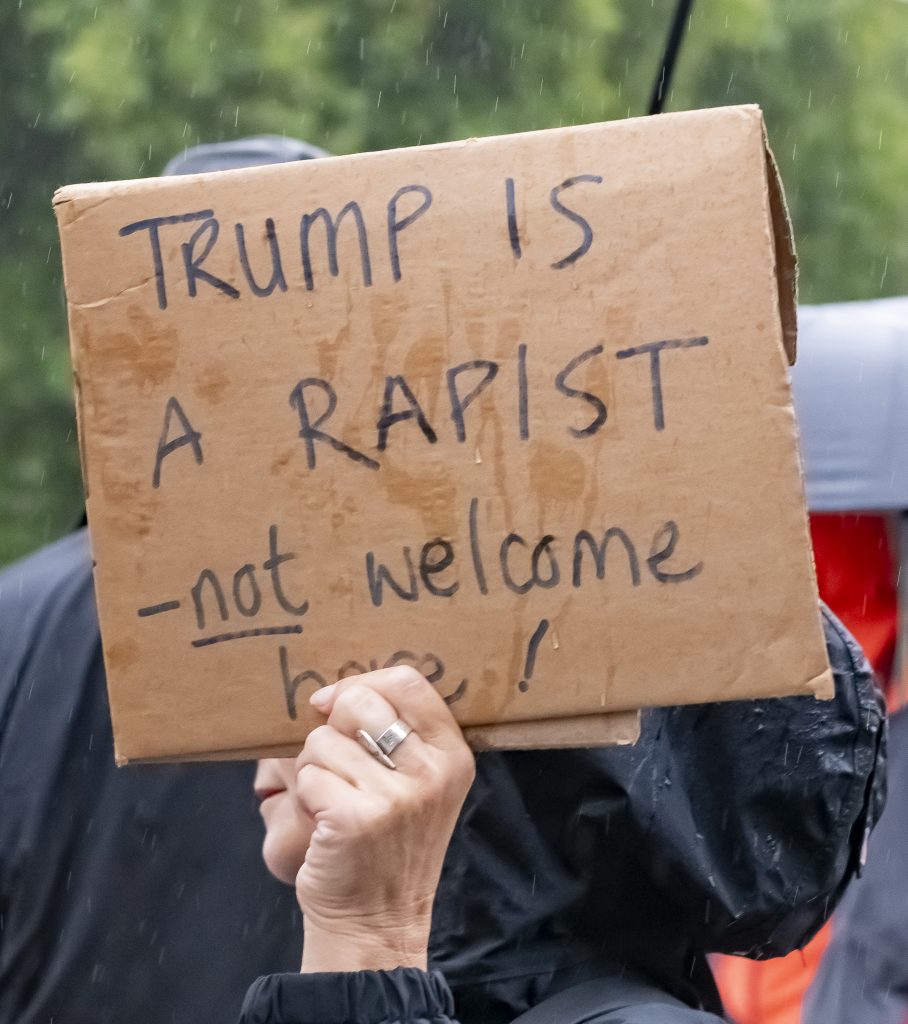 TRUMP IS
A RAPIST
-not welcome
here!